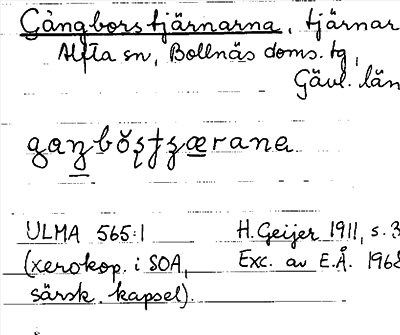 Gångborstjärnarna, tjärnar
Alfta sn, Bollnäs doms. tg,
Gävl. län
ULMA 565:1 H. Geijer 1911, s. 3
(xerokop. i SOA, Exc. av E.Å. 1968
särsk. kapsel).